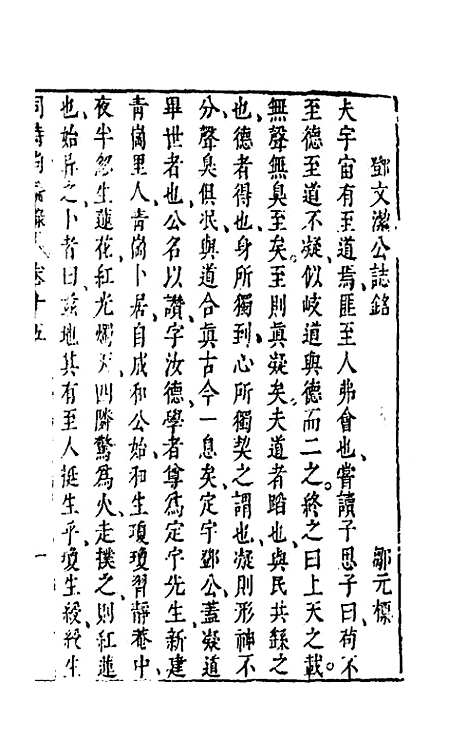 鄧文潔公誌銘 鄒元標
夫宇宙有至道焉匪至人弗會也嘗讀子思子曰苟不
至德至道不凝似岐道與德而二之終之曰上天之載
無聲無臭至矣至則真凝矣夫道者蹈也與民共繇之
也德者得也身所獨到心所獨契之謂也凝則形神不
分聲臭俱泯與道合真古今一息矣定宇鄧公蓋凝道
畢世者也公名以讚字汝德學者尊爲定宇先生新建
青崗里人青崗卜居自成和公始和生瓊瓊習靜菴中
夜半忽生蓮花紅光燭天四隣驚爲火走撲之則紅蓮
也始异之卜者曰茲地其有至人挺生乎瓊生綬綬生
卷十五 一